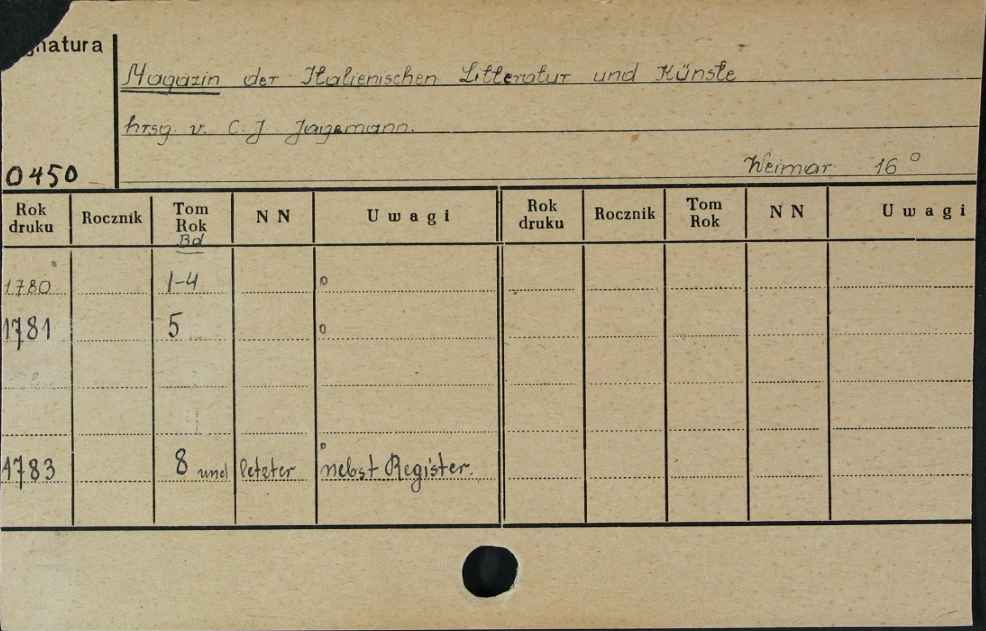 gnatura
Magazin der Italienischen Litteratur und Künste
hrsg. v. C. J. Jagemann.
Weimar 16°
0450
Rok druku Rocznik Tom Rok N N Uwagi Rok druku Rocznik Tom Rok N N Uwagi
Bd
1780 1-4 °
1781 5 °
1783 8 und letzter ° nebst Register.